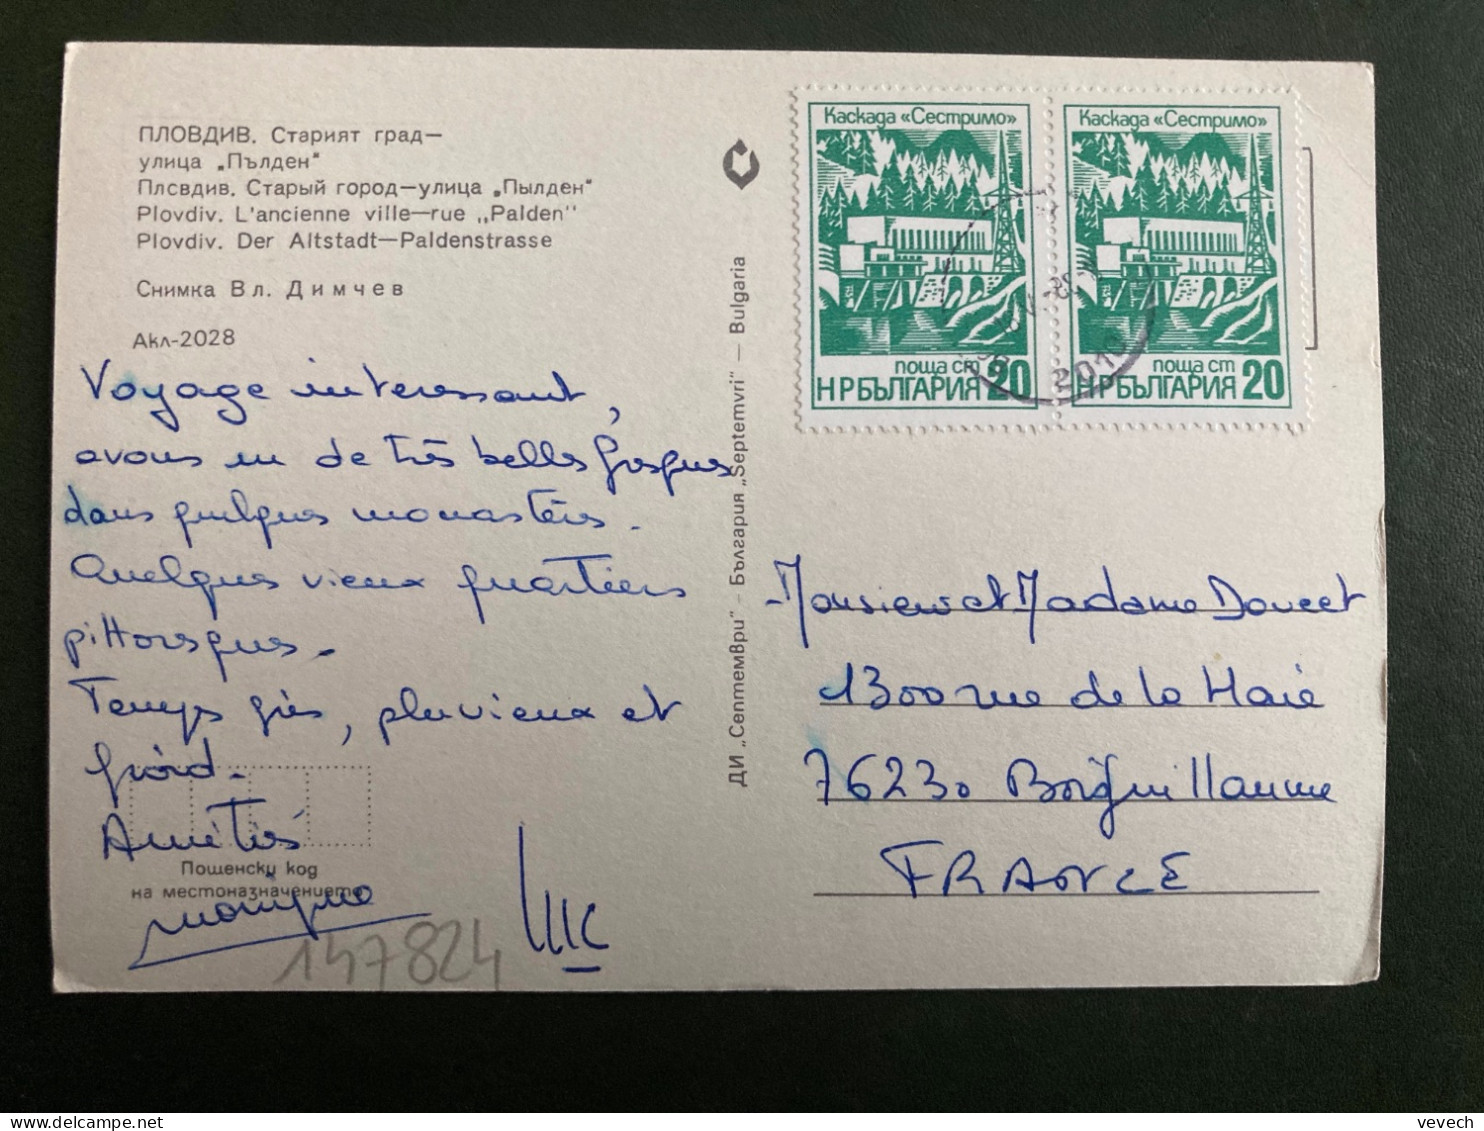 ПЛОВДИВ. Старият град—
улица „Пълден"
Плсвдив. Старый город—улица „Пылден"
Plovdiv. L'ancienne ville—rue „Palden"
Plovdiv. Der Altstadt—Paldenstrasse
Снимка Вл. Димчев
Акл-2028
Voyage interessant,
avons vu de très belles fresques
dans quelques monastères.
Quelques vieux quartiers
pittoresques.
Temps gris, pluvieux et
froid.
Amitiés
Пощенски код
на местоназначението
Monique
147824
ДИ „Септември" - България „Septemvri" — Bulgaria
Каскада «Сестримо»
поща ст
НР БЪЛГАРИЯ 20
Каскада «Сестримо»
поща ст
НР БЪЛГАРИЯ 20
2010
Monsieur et Madame Doucet
1300 rue de la Haie
76230 Boisguillaume
FRANCE
vevech